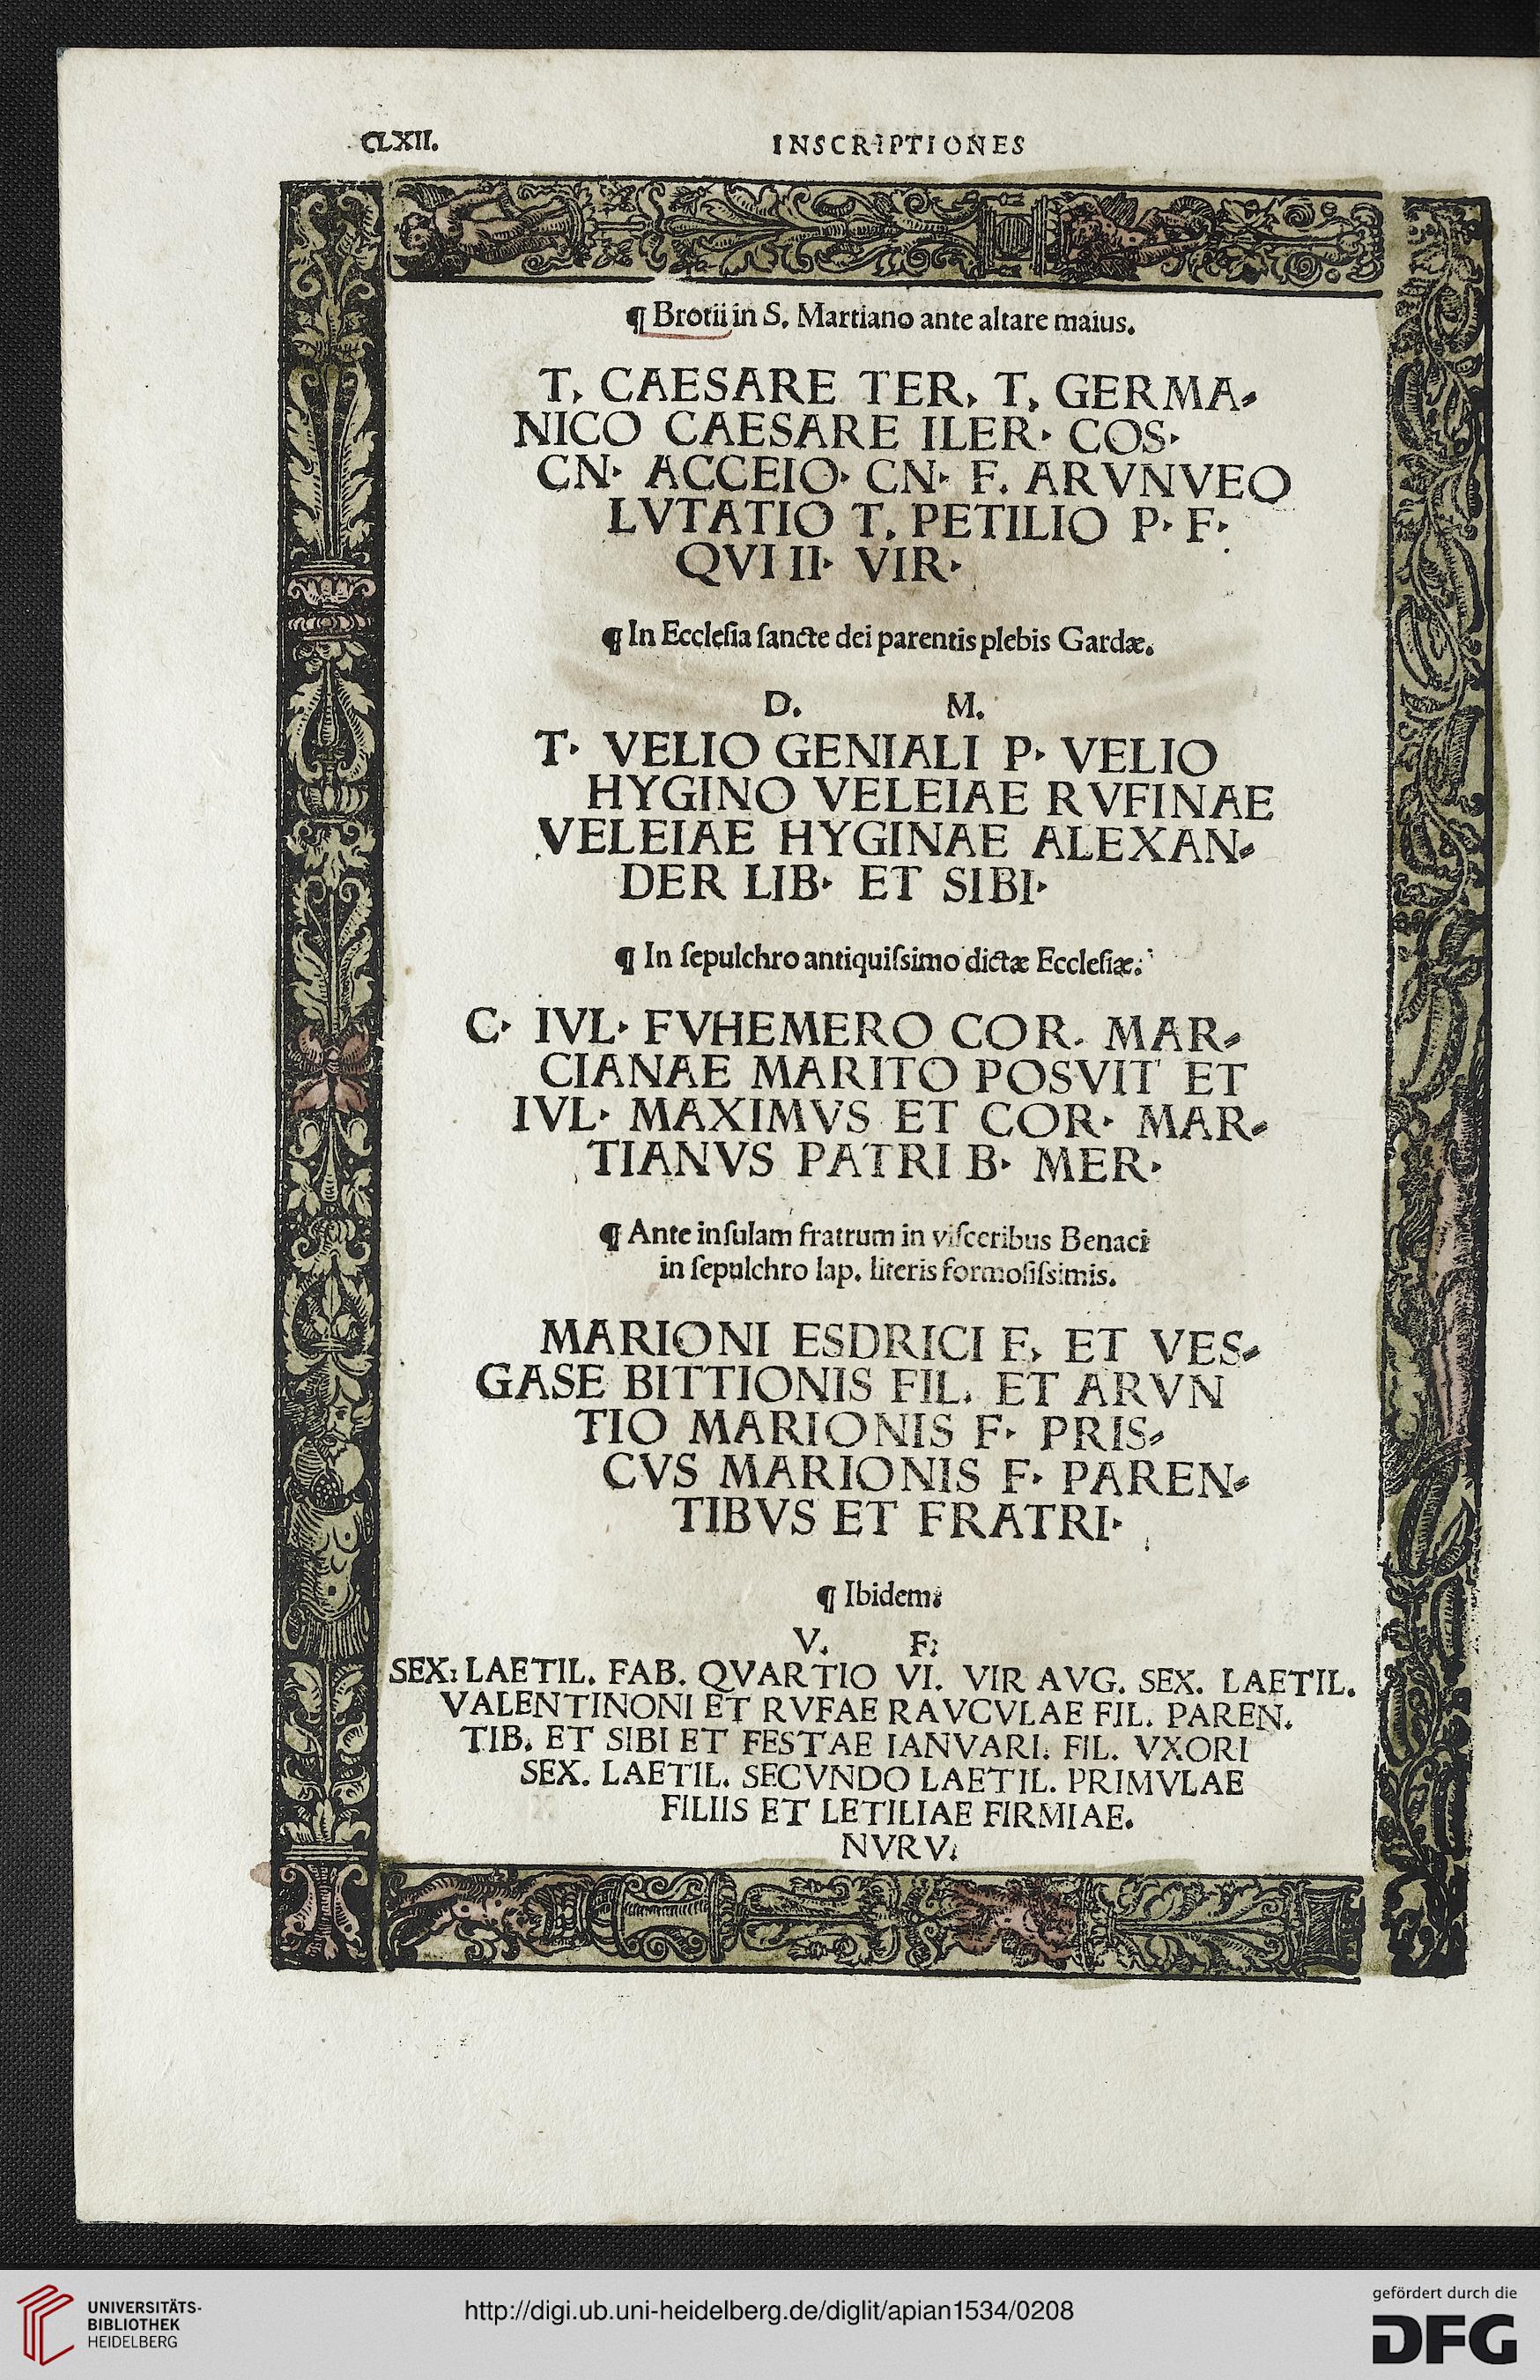 CLXII.
INSCRIPTIONES
¶ Brotii in S. Martiano ante altare maius.
T, CAESARE TER, T, GERMA⸗
NICO CAESARE ILER· COS·
CN· ACCEIO· CN· F. ARVNVEO
LVTATIO T. PETILIO P· F·
QVI II· VIR·
¶ In Ecclesia sancte dei parentis plebis Gardæ.
D. M.
T· VELIO GENIALI P· VELIO
HYGINO VELEIAE RVFINAE
VELEIAE HYGINAE ALEXAN⸗
DER LIB· ET SIBI·
¶ In sepulchro antiquissimo dictæ Ecclesiæ:
C· IVL· FVHEMERO COR. MAR⸗
CIANAE MARITO POSVIT ET
IVL· MAXIMVS ET COR· MAR⸗
TIANVS PATRI B· MER·
¶ Ante insulam fratrum in visceribus Benaci
in sepulchro lap. literis formosissimis.
MARIONI ESDRICI F, ET VES⸗
GASE BITTIONIS FIL. ET ARVN
TIO MARIONIS F· PRIS⸗
CVS MARIONIS F· PAREN⸗
TIBVS ET FRATRI·
¶ Ibidem:
V. F:
SEX: LAETIL. FAB. QVARTIO VI. VIR AVG. SEX. LAETIL.
VALENTINONI ET RVFAE RAVCVLAE FIL. PAREN.
TIB. ET SIBI ET FESTAE IANVARI. FIL. VXORI
SEX. LAETIL. SECVNDO LAETIL. PRIMVLAE
FILIIS ET LETILIAE FIRMIAE.
NVRV:
UNIVERSITÄTS-
BIBLIOTHEK
HEIDELBERG
http://digi.ub.uni-heidelberg.de/diglit/apian1534/0208
gefördert durch die
DFG